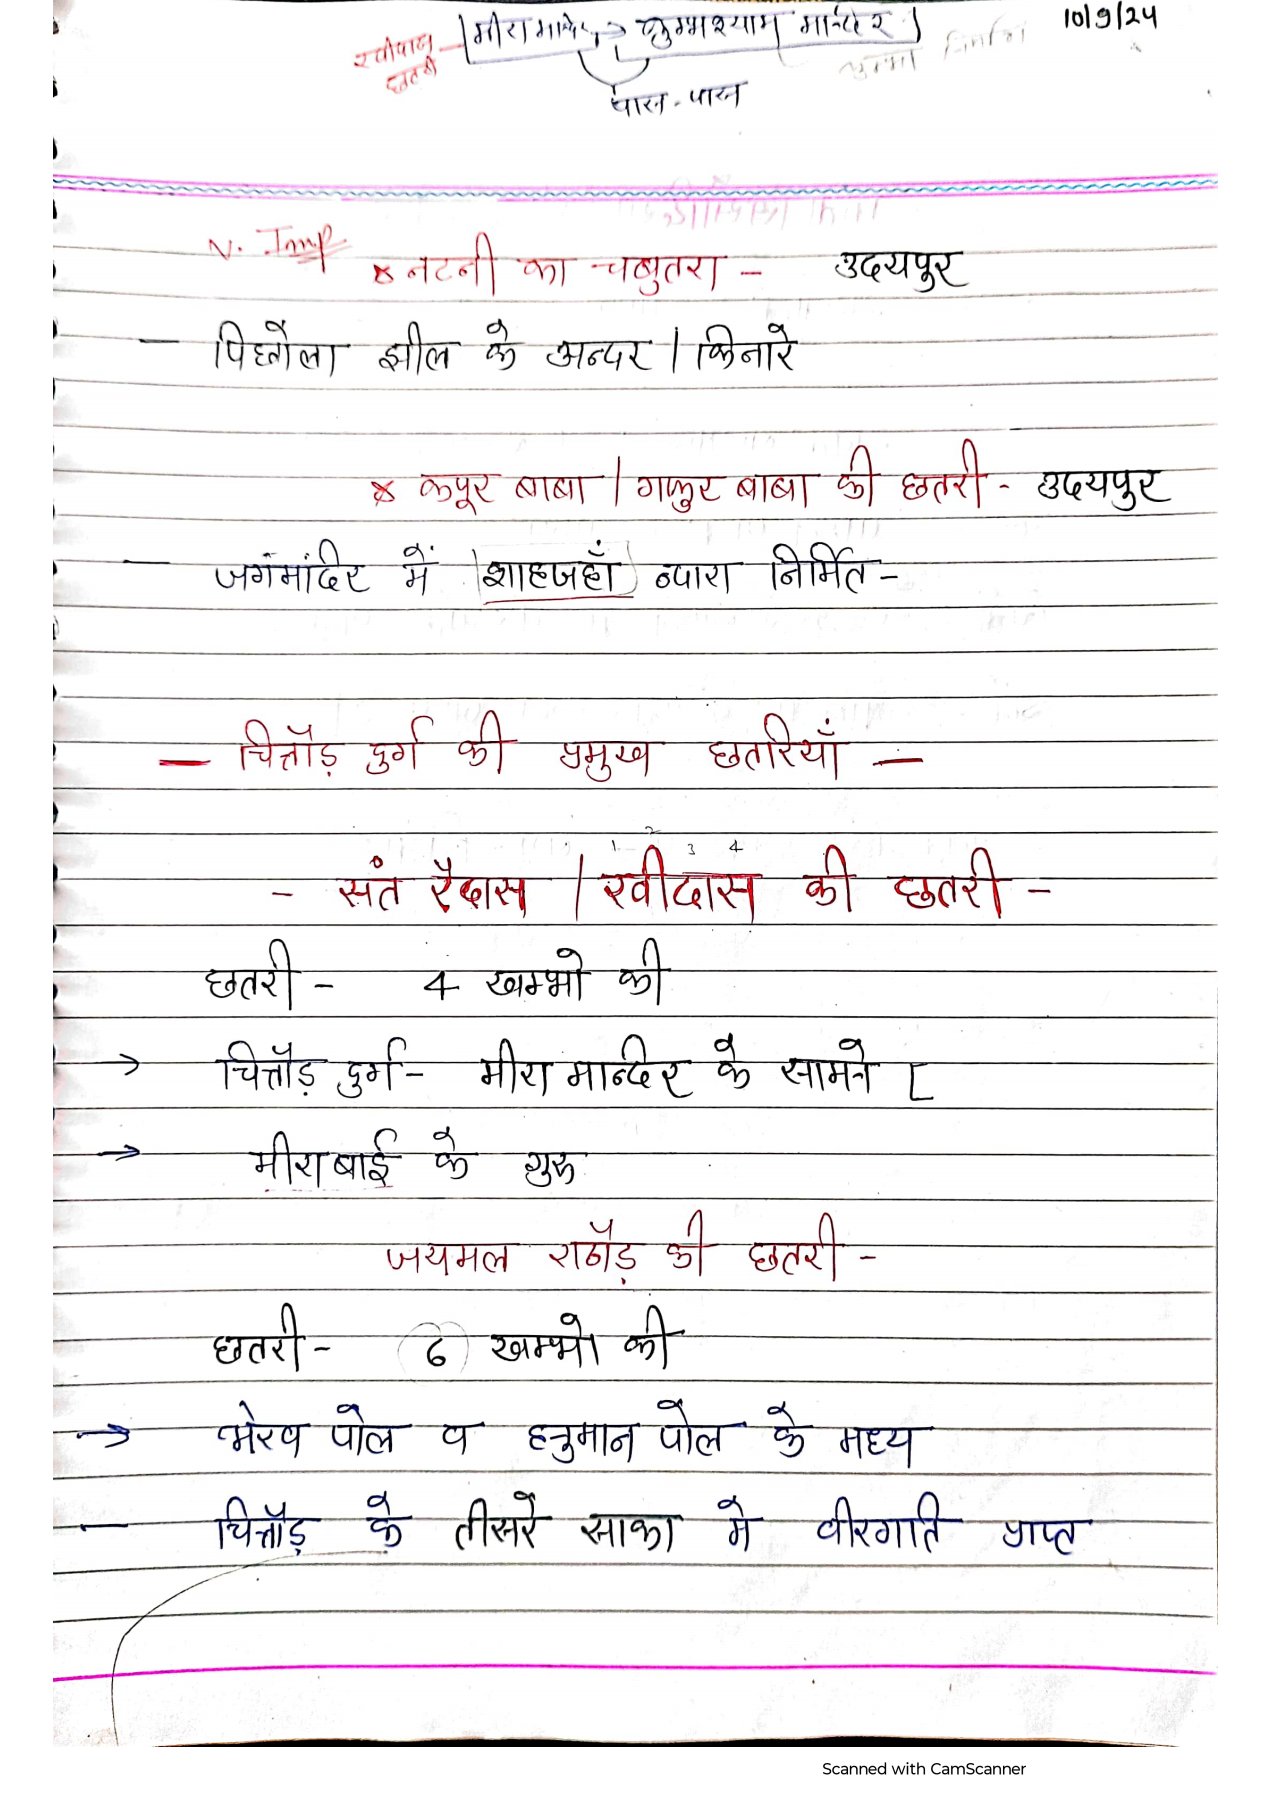 10/9/24
मीरा मन्दिर → कुम्भश्याम मन्दिर
रवीदास
छतरी
कुम्भा निर्माण
पास-पास
V. Imp
* नटनी का चबुतरा - उदयपुर
- पिछौला झील के अन्दर / किनारे
* कपूर बाबा / गफुर बाबा की छतरी - उदयपुर
- जगंमांदिर में शाहजहाँ व्दारा निर्मित -
- चित्तौड़ दुर्ग की प्रमुख छतरियाँ -
1 2 3 4
- संत रैदास / रवीदास की छतरी -
छतरी - 4 खम्भो की
→ चित्तौड़ दुर्ग - मीरा मान्दिर के सामने [
→ मीरा बाई के गुरु
जयमल राठौड़ की छतरी -
छतरी - 6 खम्भो की
→ भेरव पोल व हनुमान पोल के मध्य
- चित्तौड़ के तीसरे साका मे वीरगति प्राप्त
Scanned with CamScanner